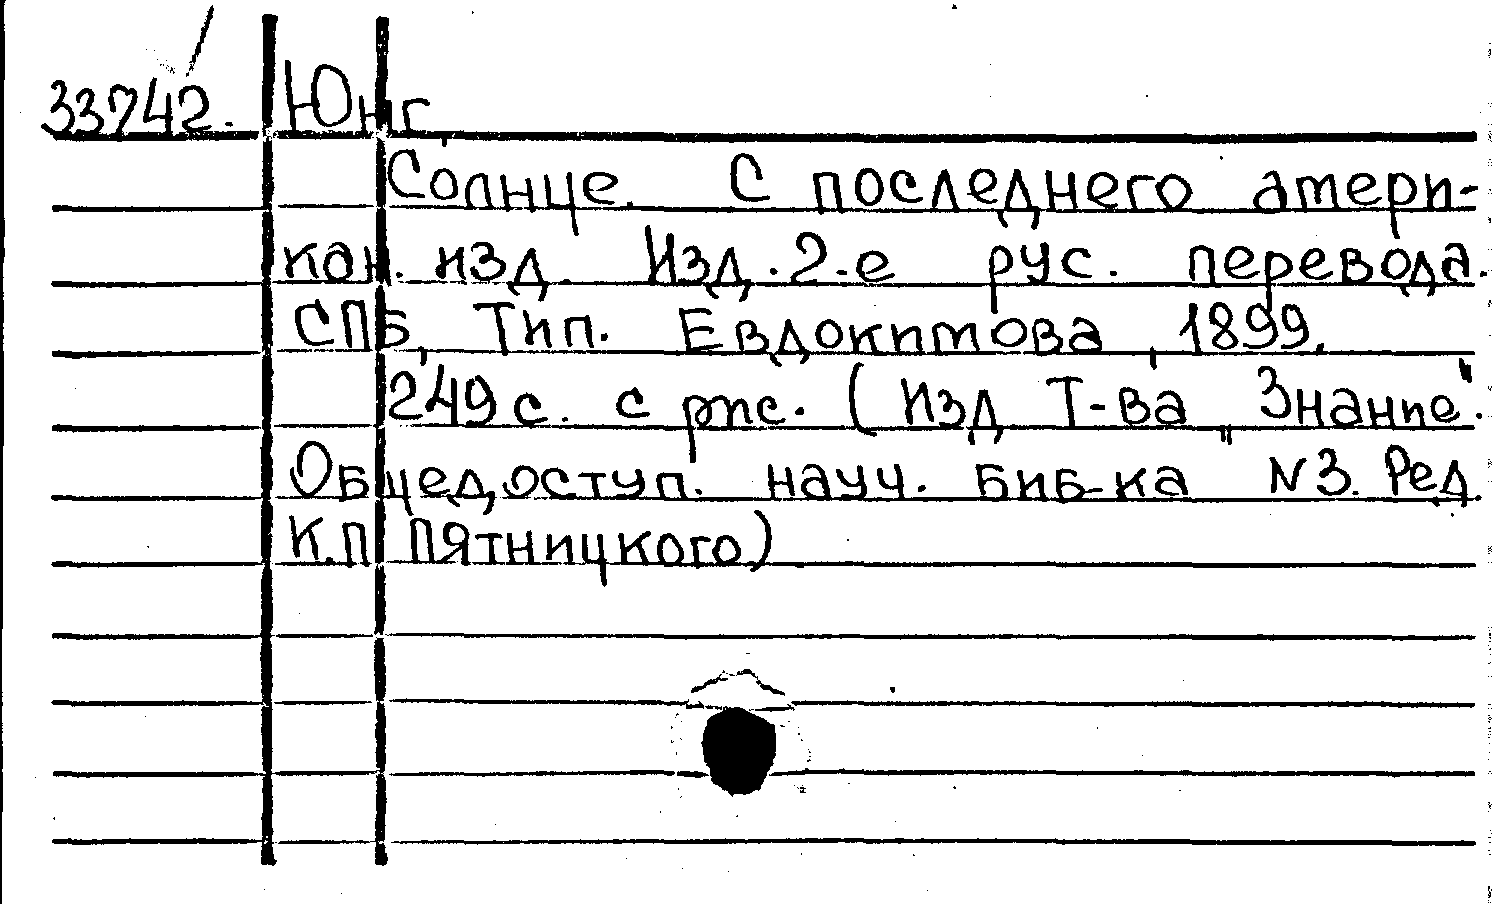 33742. Юнг,
Солнце. С последнего амери-
кан. изд. Изд. 2-е рус. перевода.
СПБ, Тип. Евдокимова, 1899.
249 с. с рис. (Изд Т-ва „Знание".
Общедоступ. науч. биб-ка N3. Ред.
К.П Пятницкого)